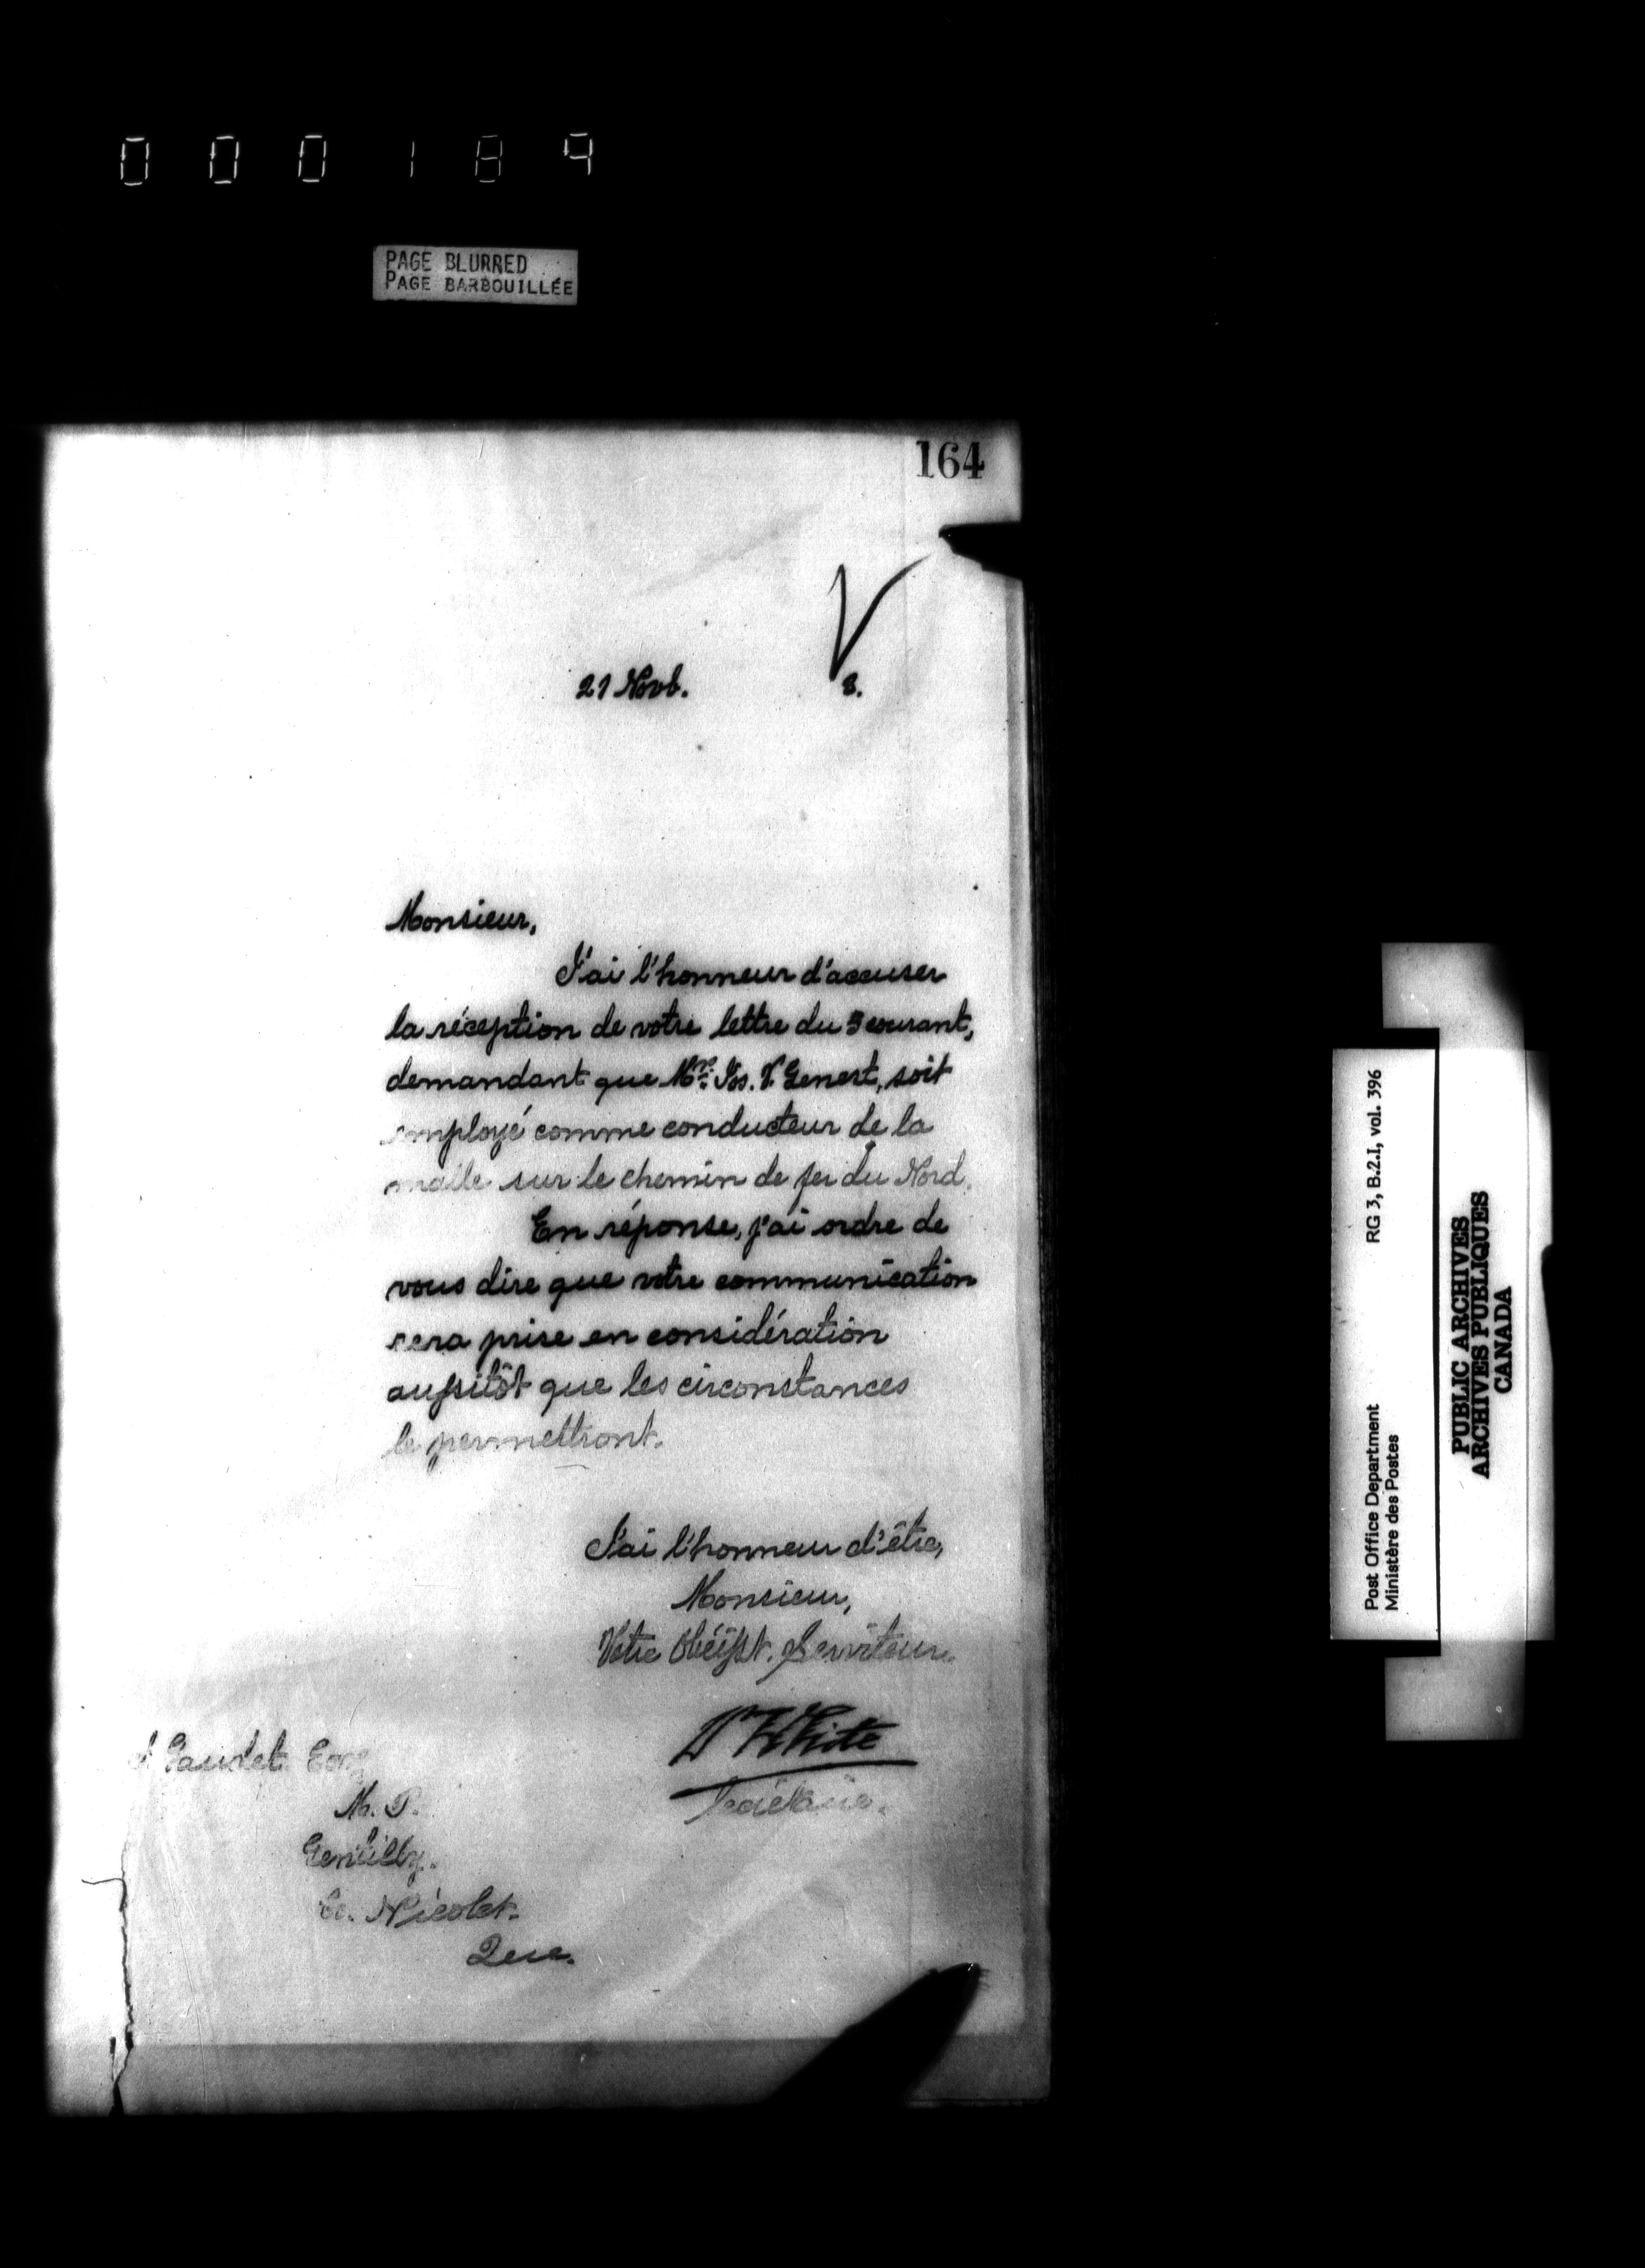 000189
PAGE BLURRED
PAGE BARBOUILLÉE
164
21 Novb. 8.
Monsieur,
J'ai l'honneur d'accuser
la réception de votre lettre du 5 courant,
demandant que Mr. Jos. V. Genest, soit
employé comme conducteur de la
malle sur le chemin de fer du Nord.
En réponse, j'ai ordre de
vous dire que votre communication
sera prise en considération
aussitôt que les circonstances
le permettront.
J'ai l'honneur d'être,
Monsieur,
Votre Obéisst. Serviteur.
W White
Secrétaire.
Gaudet Esq
M. P.
Gentilly.
Co. Nicolet.
Que.
Post Office Department
Ministère des Postes
RG 3, B.2.I, vol. 396
PUBLIC ARCHIVES
ARCHIVES PUBLIQUES
CANADA